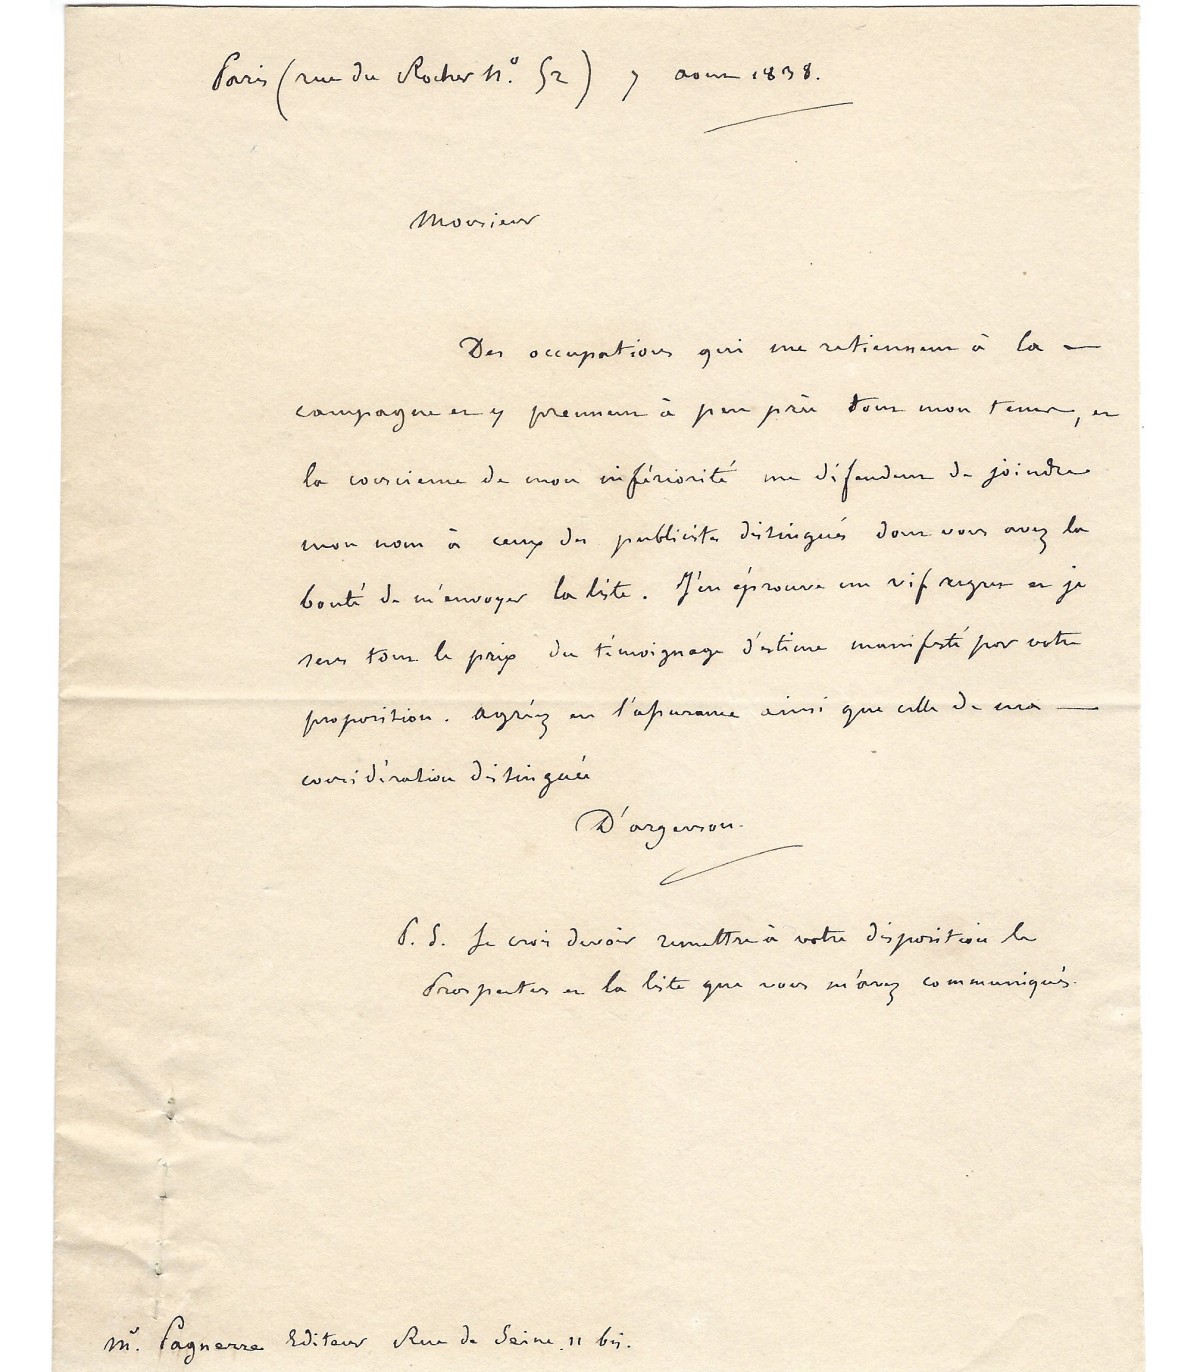 Paris (rue du Rocher N.º 52) 7 aout 1838.
Monsieur
Des occupations qui me retiennent à la —
campagne et y prennent à peu près tout mon tems, et
la conscience de mon infériorité me défendent de joindre
mon nom à ceux des publicistes distingués dont vous avez la
bonté de m'envoyer la liste. J'en éprouve un vif regret et je
sens tout le prix du témoignage d'estime manifesté par votre
proposition. agréez en l'assurance ainsi que celle de ma —
considération distinguée
D'argenson.
P. S. Je crois devoir remettre à votre disposition le
Prospectus et la liste que vous m'avez communiqués.
Mr. Pagnerre Editeur Rue de Seine. 11 bis.